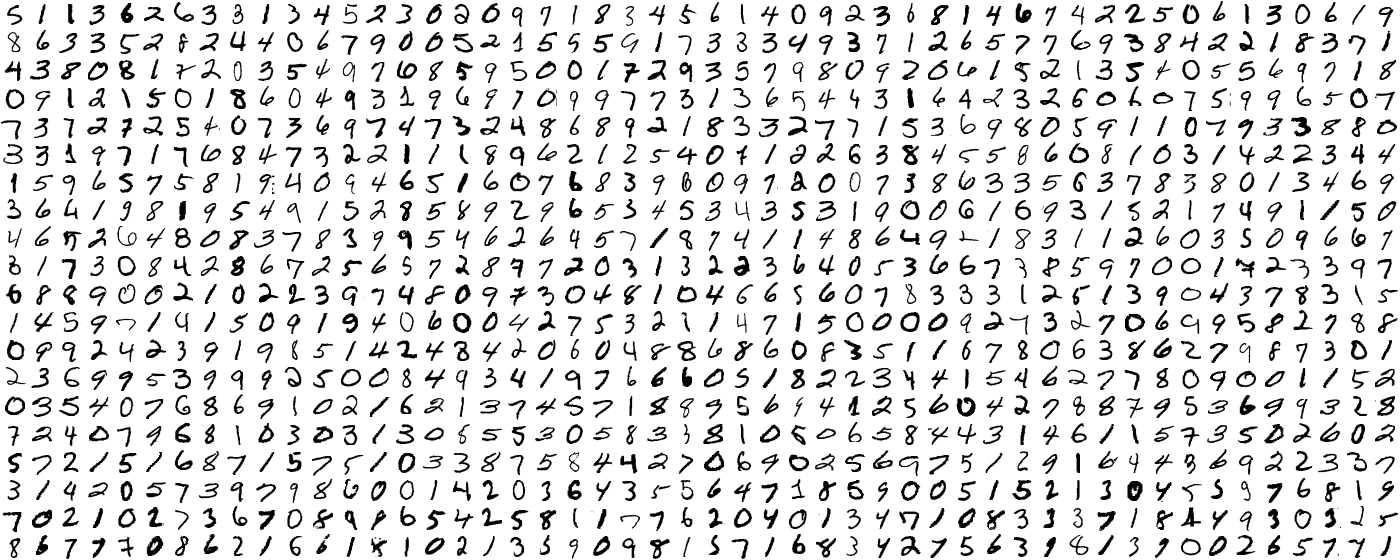 5 1 1 3 6 2 6 3 3 1 3 4 5 2 3 0 2 0 9 9 7 1 8 3 4 5 6 1 4 0 9 2 3 6 8 1 4 6 7 4 2 2 5 0 6 1 3 0 6 1 9
8 6 3 3 5 2 8 2 4 4 0 6 7 9 0 0 5 2 1 5 5 5 9 1 7 3 3 3 4 9 3 7 1 2 6 5 7 7 6 9 3 8 4 2 2 1 8 3 7 1
4 3 8 0 8 1 7 2 0 3 5 4 9 7 6 8 5 9 5 0 0 1 7 2 9 3 5 7 9 8 0 9 2 0 6 1 5 2 1 3 5 4 0 5 5 6 9 7 1 8
0 9 1 2 1 5 0 1 8 6 0 4 9 3 1 9 6 9 7 0 9 9 7 7 3 1 3 6 5 4 4 3 1 6 4 2 3 2 6 0 6 0 7 5 9 9 6 5 0 7
7 3 7 2 7 2 5 4 0 7 3 6 9 7 4 7 3 2 4 8 6 8 9 2 1 8 3 3 2 7 7 1 5 3 6 9 8 0 5 9 1 1 0 7 9 3 3 8 8 0
3 3 1 9 7 1 7 6 8 4 7 3 2 2 1 1 1 8 9 6 2 1 2 5 4 0 7 1 2 2 6 3 8 4 5 5 8 6 0 8 1 0 3 1 4 2 2 3 4 4
1 5 9 6 5 7 5 8 1 9 4 0 9 4 6 5 1 6 0 7 6 8 3 9 6 0 9 7 2 0 0 7 3 8 6 3 3 5 6 3 7 8 3 8 0 1 3 4 6 9
3 6 4 1 9 8 1 9 5 4 9 1 5 2 8 5 8 9 2 9 6 5 3 4 5 3 4 3 5 3 1 9 0 0 6 1 6 9 3 1 5 2 1 7 4 9 1 1 5 0
4 6 5 2 6 4 8 0 8 3 7 8 3 9 9 5 4 6 2 6 4 5 7 1 8 7 4 1 1 4 8 6 4 9 1 8 3 1 1 2 6 0 3 5 0 9 6 6 7
3 1 7 3 0 8 4 2 8 6 7 2 5 6 5 7 2 8 7 7 2 0 3 1 3 2 2 3 6 4 0 5 3 6 6 7 3 8 5 9 7 0 0 1 7 2 3 3 9 7
6 8 8 9 0 0 2 1 0 2 2 3 9 7 4 8 0 9 7 3 0 4 8 1 0 4 6 6 5 6 0 7 8 3 3 3 1 2 6 1 3 9 0 4 3 7 8 3 1 5
1 4 5 9 7 1 4 1 5 0 9 1 9 4 0 6 0 0 4 2 7 5 3 2 1 1 4 7 1 5 0 0 0 0 9 2 7 3 2 7 0 6 9 9 5 8 2 7 8 8
0 9 9 2 4 2 3 9 1 9 8 5 1 4 2 4 8 4 2 0 6 0 4 8 8 6 8 6 0 8 3 5 1 1 6 7 8 0 6 3 8 6 2 7 9 8 7 3 0 1
2 3 6 9 9 5 3 9 9 9 2 5 0 0 8 4 9 3 4 1 9 7 6 6 6 0 5 1 8 2 2 3 4 4 1 5 4 6 2 7 7 8 0 9 0 0 1 1 5 2
0 3 5 4 0 7 6 8 6 9 1 0 2 1 6 2 1 3 7 4 5 7 1 8 8 8 9 5 6 9 4 1 2 5 6 0 4 2 7 8 8 7 9 5 3 6 9 9 3 2 8
7 2 4 0 7 9 6 8 1 0 3 0 3 1 3 0 8 5 5 3 0 5 8 3 3 8 1 0 5 0 6 5 8 4 4 3 1 4 6 1 1 5 7 3 5 0 2 6 0 2
5 7 2 1 5 1 6 8 7 1 5 7 5 1 0 3 3 8 7 5 8 4 4 2 7 0 6 9 0 2 5 6 9 7 5 1 2 9 1 6 4 4 3 6 9 2 2 3 3 7
3 1 4 2 0 5 7 3 9 7 9 8 6 0 0 1 4 2 0 3 6 4 3 5 5 6 4 7 1 8 5 9 0 0 5 1 5 2 1 3 0 4 5 5 9 7 6 8 1 9
7 0 2 1 0 2 7 3 6 7 0 8 9 8 6 5 4 2 5 8 1 1 7 7 6 2 0 4 0 1 3 4 7 1 0 8 3 3 3 7 1 8 4 4 9 3 0 3 2 5
8 6 7 7 7 0 8 6 2 1 6 6 1 8 1 0 2 1 3 5 9 0 9 8 1 5 7 1 6 8 3 4 2 7 5 6 3 9 8 1 3 9 0 0 2 6 5 7 7 1